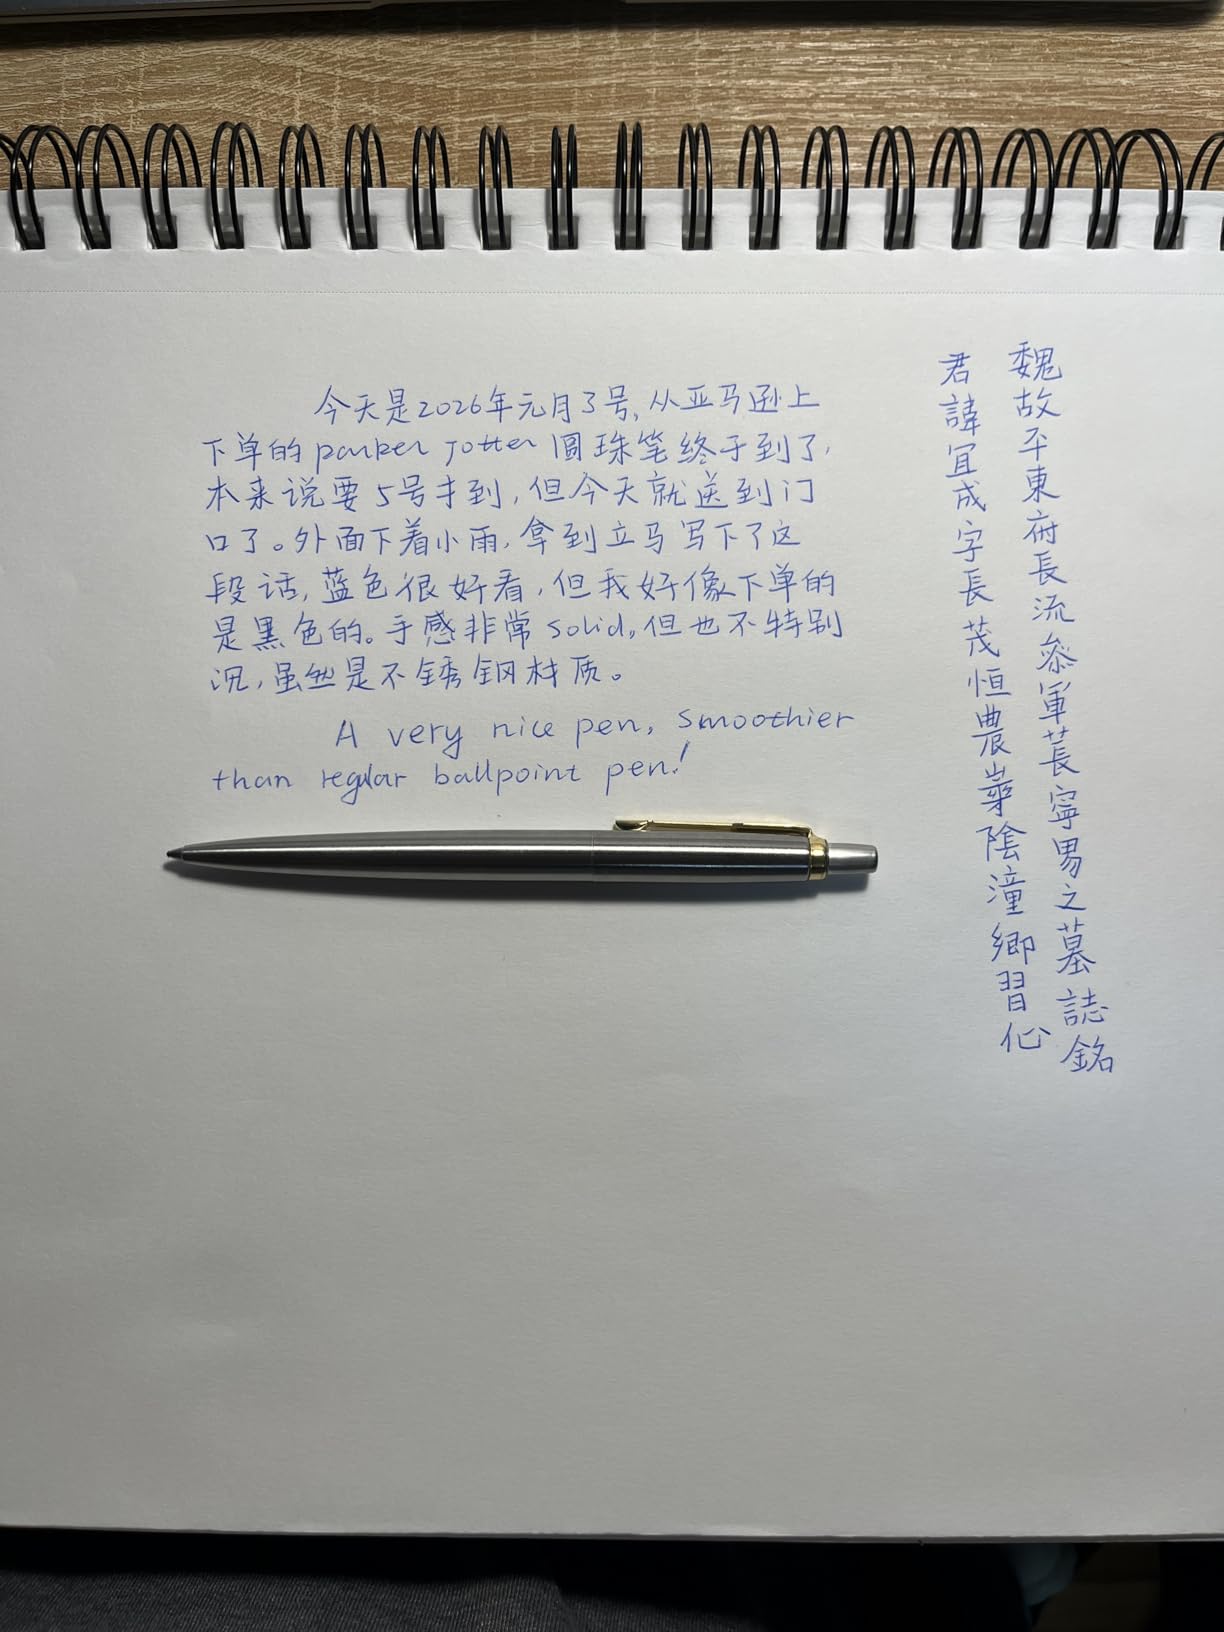 今天是2026年元月3号,从亚马逊上
下单的 parker Jotter 圆珠笔终于到了,
本来说要5号才到,但今天就送到门
口了。外面下着小雨,拿到立马写下了这
段话,蓝色很好看,但我好像下单的
是黑色的。手感非常 solid,但也不特别
沉,虽然是不锈钢材质。
A very nice pen, smoothier
than regular ballpoint pen!
魏故平東府長流叅軍萇寧男之墓誌銘
君諱宜成字長茂恒農華陰潼鄉習仙